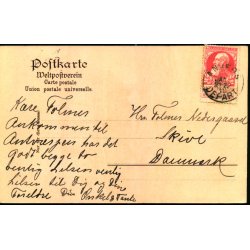 Postkarte
Weltpostverein
Carte postale
Union postale universelle.
Kare Folmer
Ankommen til
Antwerpen har det
godt begge to
venlig hilsen
hilsen til Dig og Dine
Forældre Din Onkel & Tante
Hr. Folmer Nedergaard
Skive
Danmark